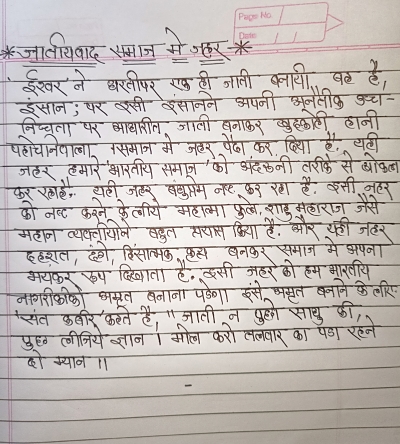 Page No.
Date / /
* जातीयवाद समाज मे जहर *
ईश्वर ने धरतीपर एक ही जाती बनायी वह है,
इंसान; पर इसी इंसानने अपनी अनैतीक उच्च-
निच्चता पर आधारीत जाती बनाकर खुदकोही हानी
पहाचानेवाला समाज मे जहर पैदा कर दिया है. यही
जहर हमारे भारतीय समाज को अंदरुनी तरीके से खोकला
कर रहाहै. यही जहर बंधुप्रेम नष्ट कर रहा है. इसी जहर
को नष्ट करने के लीये महात्मा फुले, शाहु महाराज जैसे
महान व्यक्तीयोने बहुत प्रयास किया है. और यही जहर
दहशत, दंगे, हिंसात्मक बनकर समाज मे अपना
भयंकर रुप दिखाता है. इसी जहर को हम भारतीय
नागरीकोको अमृत बनाना पडेगा। इसे अमृत बनाने के लीए
संत कबीर कहते है, " जाती न पुछो साधु की,
पुछ लीजिये ज्ञान । मोल करो तलवार का पडा रहने
दो म्यान ।।